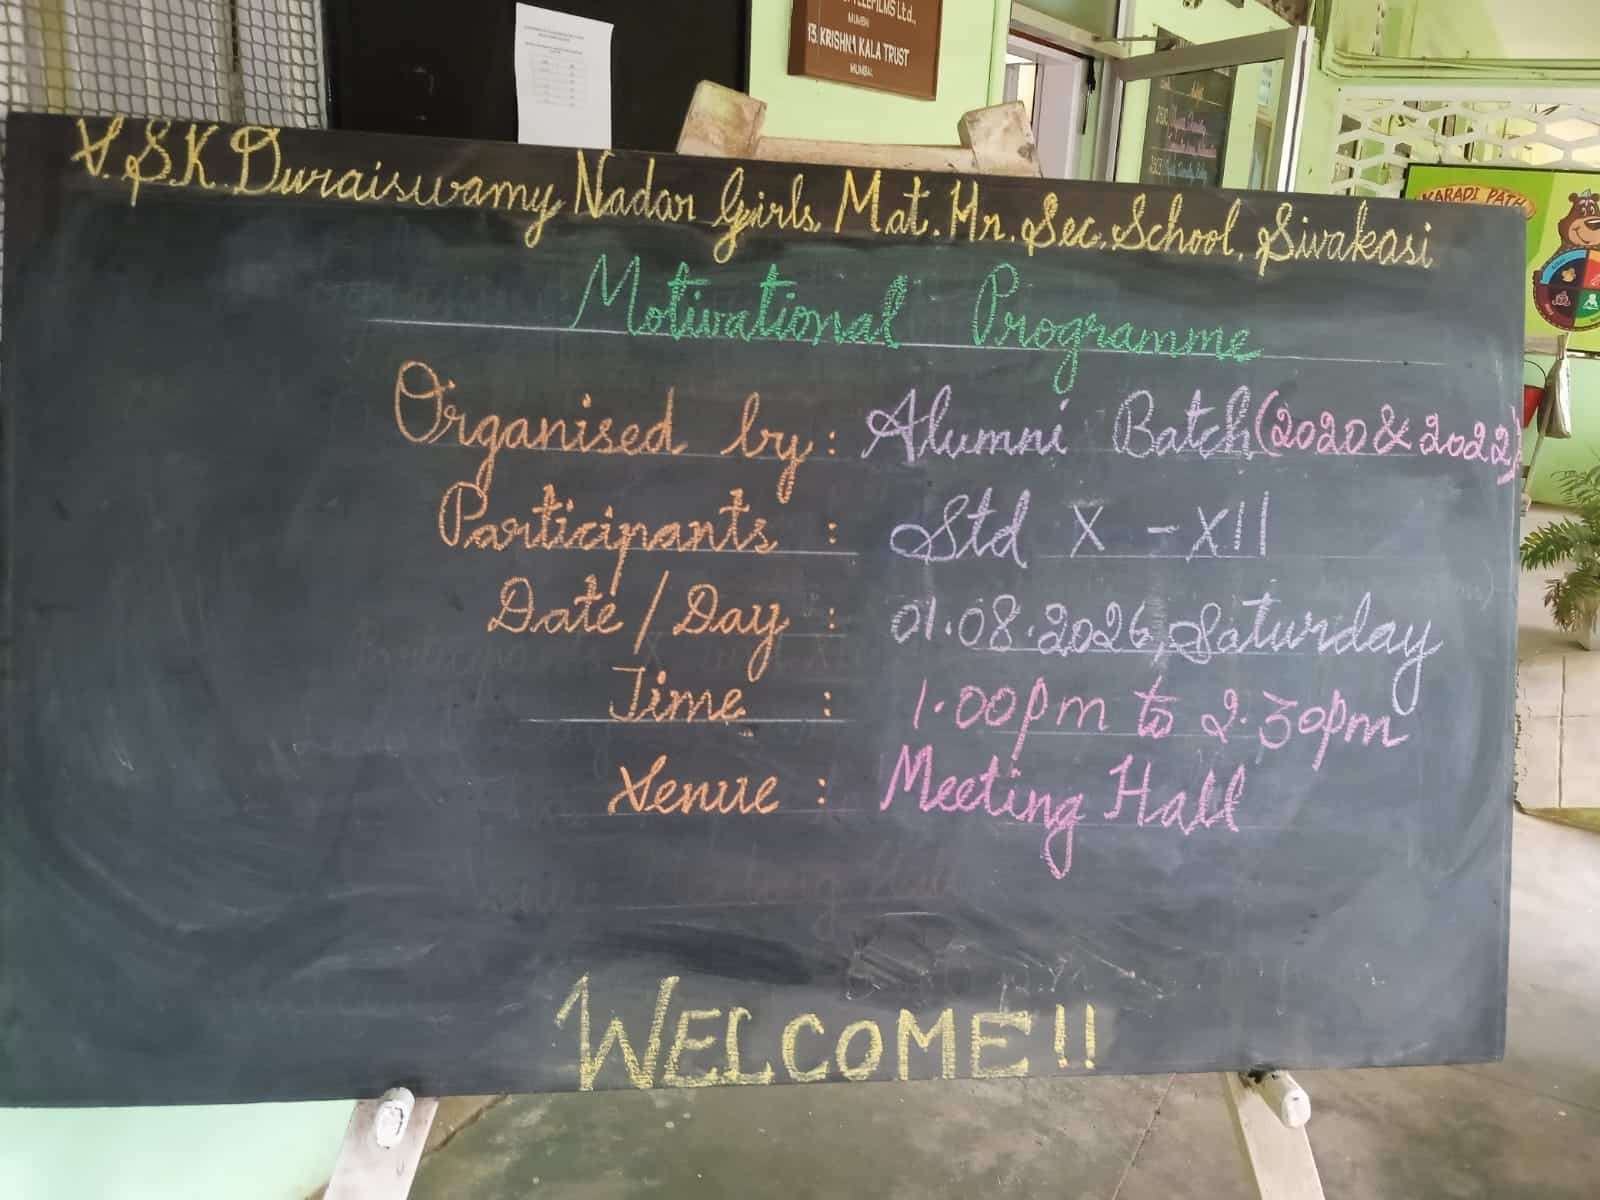 TELEFILMS Ltd.,
MUMBAI
13. KRISHNA KALA TRUST
MUMBAI.
KARADI PATH
V.S.K. Duraiswamy Nadar Girls Mat. Hr. Sec. School, Sivakasi
Motivational Programme
Organised by : Alumni Batch (2020 & 2022)
Participants : Std X - XII
Date / Day : 01.08.2026, Saturday
Time : 1.00pm to 2.30pm
Venue : Meeting Hall
WELCOME!!